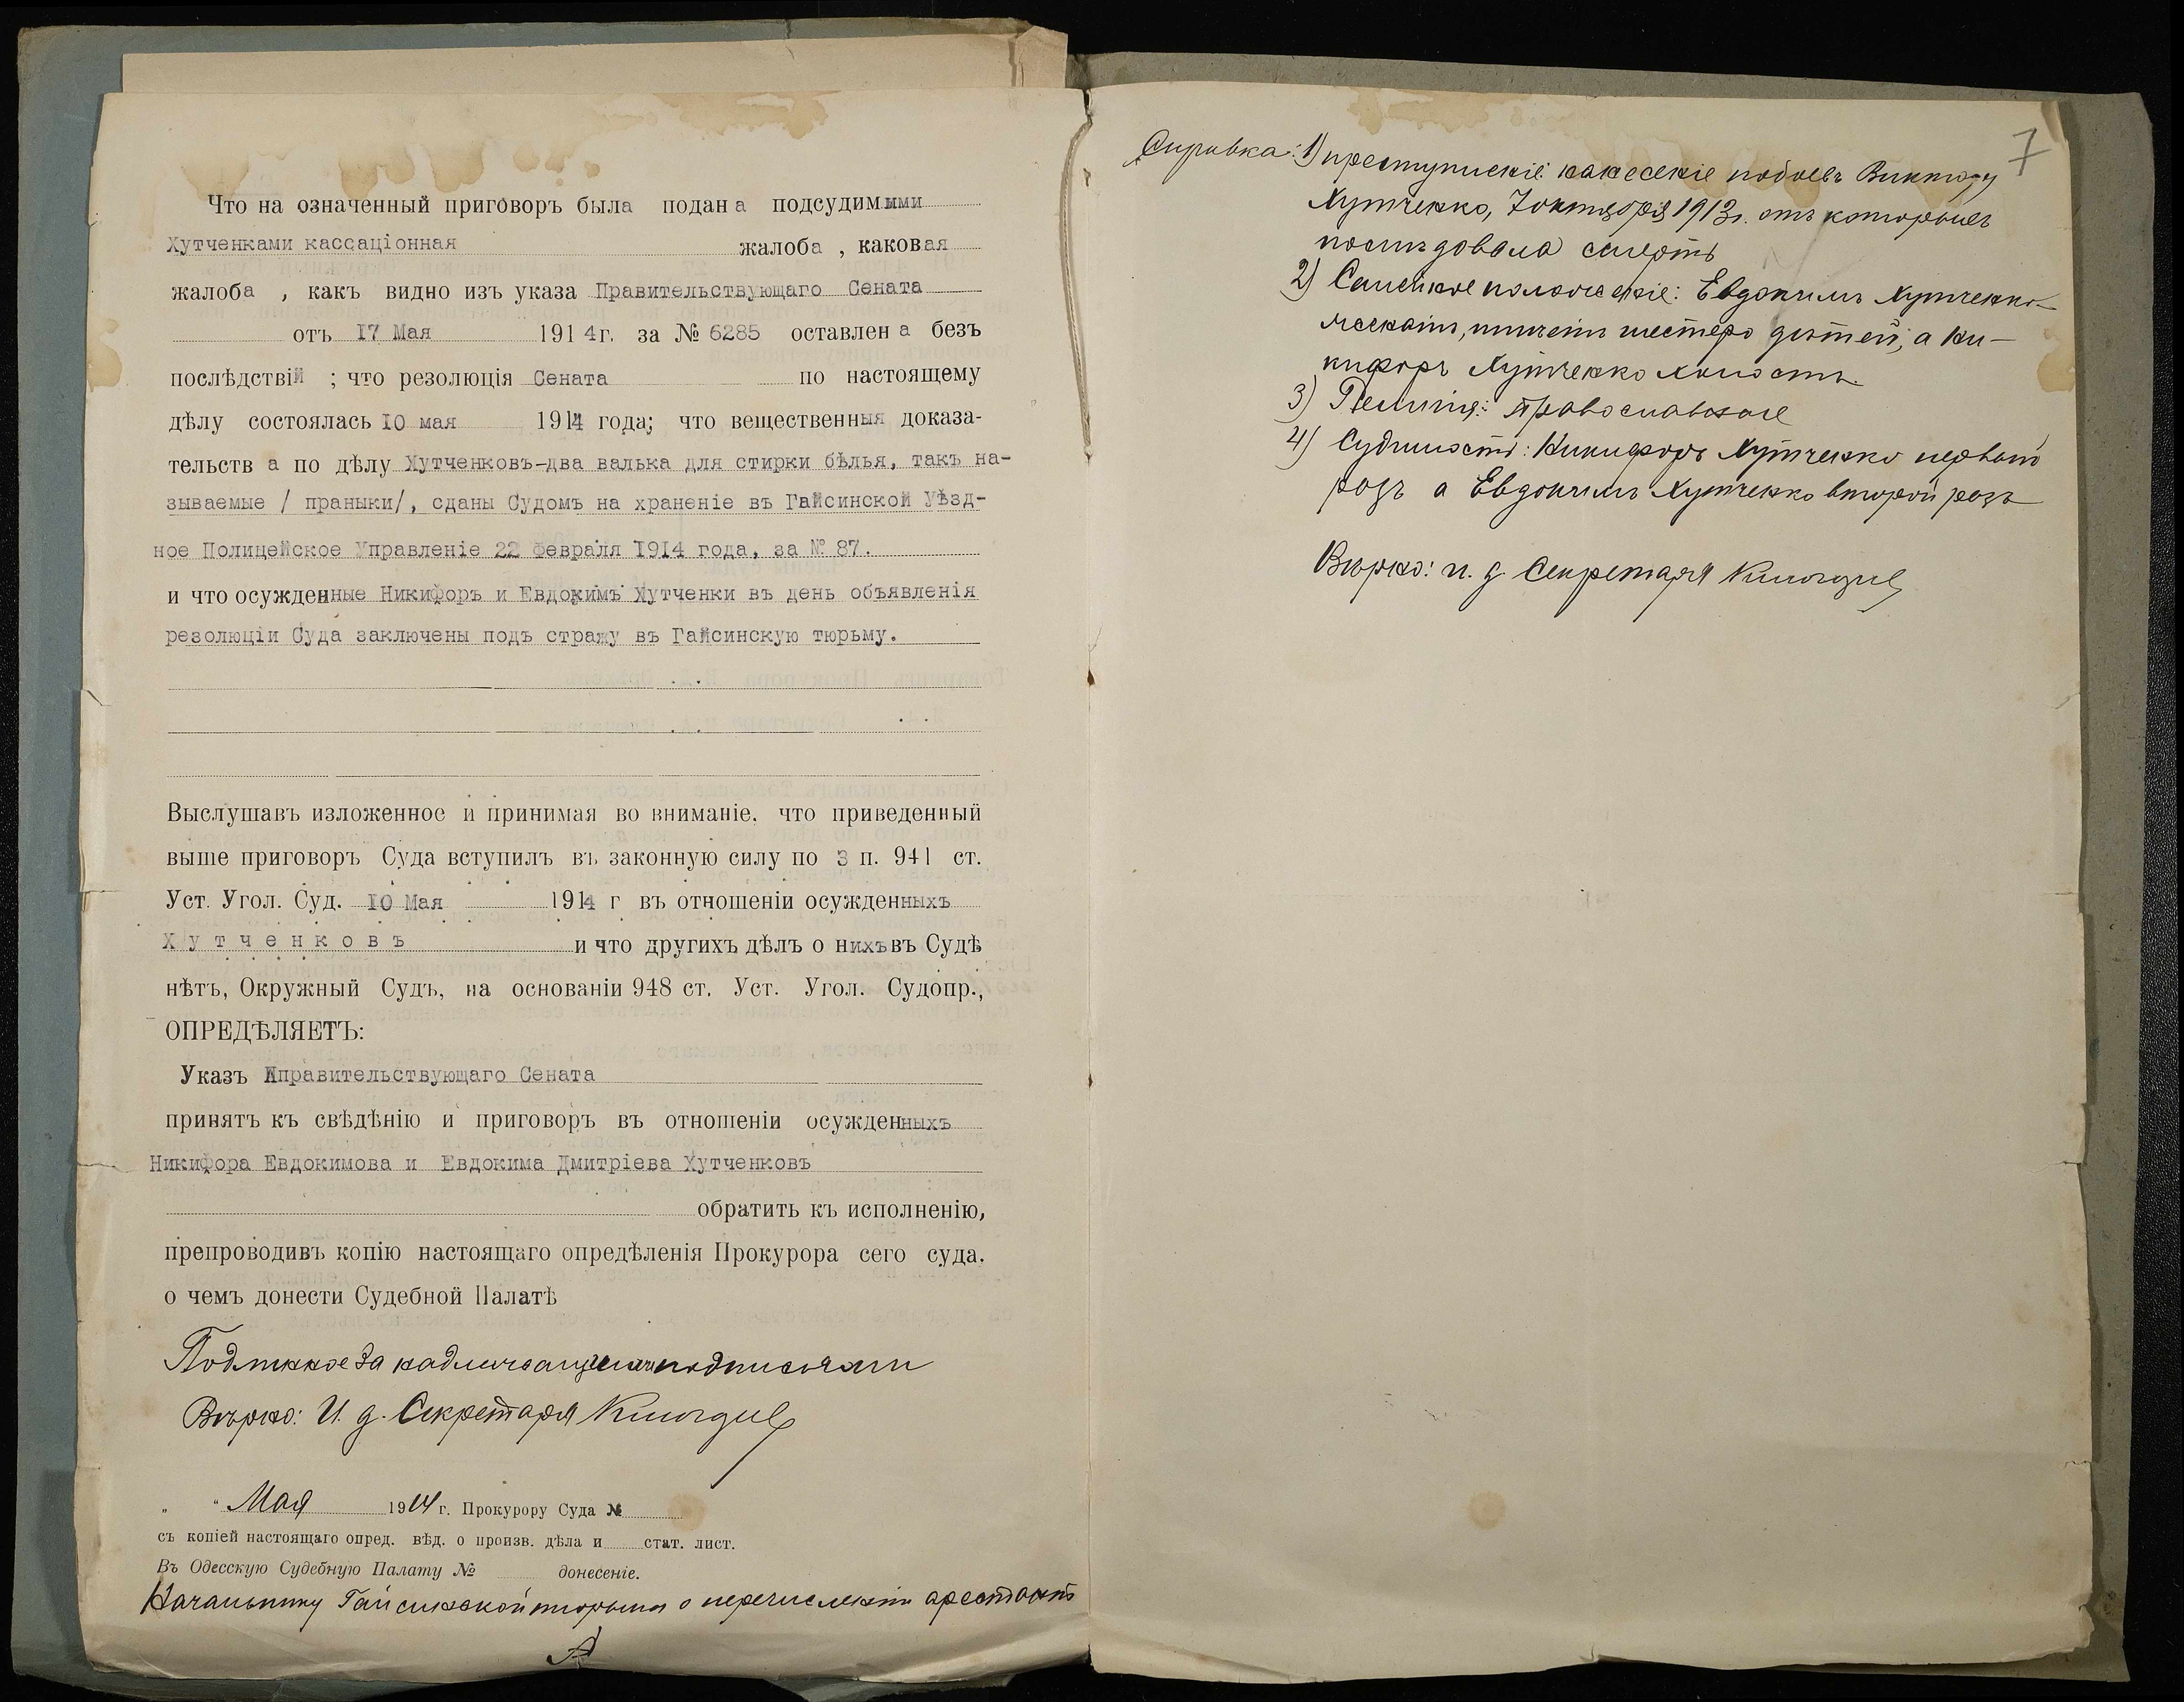 Что на означенный приговоръ была подана подсудимыми
Хутченками кассаціонная жалоба , каковая
жалоба , какъ видно изъ указа Правительствующаго Сената
отъ 17 Мая 1914г. за № 6285 оставлена безъ
послѣдствій ; что резолюція Сената по настоящему
дѣлу состоялась 10 мая 1914 года; что вещественныя доказа-
тельства по дѣлу Хутченковъ-два валька для стирки бѣлья, такъ на-
зываемые / праныки/, сданы Судомъ на храненіе въ Гайсинской Уѣзд-
ное Полицейское Управленіе 22 февраля 1914 года, за № 87.
и что осужденные Никифоръ и Евдокимъ Хутченки въ день объявленія
резолюціи Суда заключены подъ стражу въ Гайсинскую тюрьму.
Выслушавъ изложенное и принимая во вниманіе, что приведенный
выше приговоръ Суда вступилъ въ законную силу по 3 п. 941 ст.
Уст. Угол. Суд. 10 Мая 1914 г въ отношеніи осужденныхъ
Хутченковъ и что другихъ дѣлъ о нихъ въ Судѣ
нѣтъ, Окружный Судъ, на основаніи 948 ст. Уст. Угол. Судопр.,
ОПРЕДѢЛЯЕТЪ:
Указъ Правительствующаго Сената
принять къ свѣдѣнію и приговоръ въ отношеніи осужденныхъ
Никифора Евдокимова и Евдокима Дмитріева Хутченковъ
обратить къ исполненію,
препроводивъ копію настоящаго опредѣленія Прокурора сего суда.
о чемъ донести Судебной Палатѣ
Подлинное за надлежащими подписями
Вѣрно: И. д. Секретаря
„ “ Мая 1914 г. Прокурору Суда №
съ копіей настоящаго опред. вѣд. о произв. дѣла и стат. лист.
Въ Одесскую Судебную Палату № донесеніе.
Начальнику Гайсинской тюрьмы о перечисленіи арестантъ
7
Справка: 1) преступленіе: нанесеніе побоевъ Виктору
Хутченко, 7 октября 1913г. отъ которыхъ
послѣдовала смерть
2) Семейное положеніе: Евдокимъ Хутченко
женатъ, имѣетъ шестеро дѣтей, а Ни-
кифоръ Хутченко холостъ.
3) Религія: православное
4) Судимость: Никифоръ Хутченко первый
разъ а Евдокимъ Хутченко второй разъ
Вѣрно: и. д. Секретаря